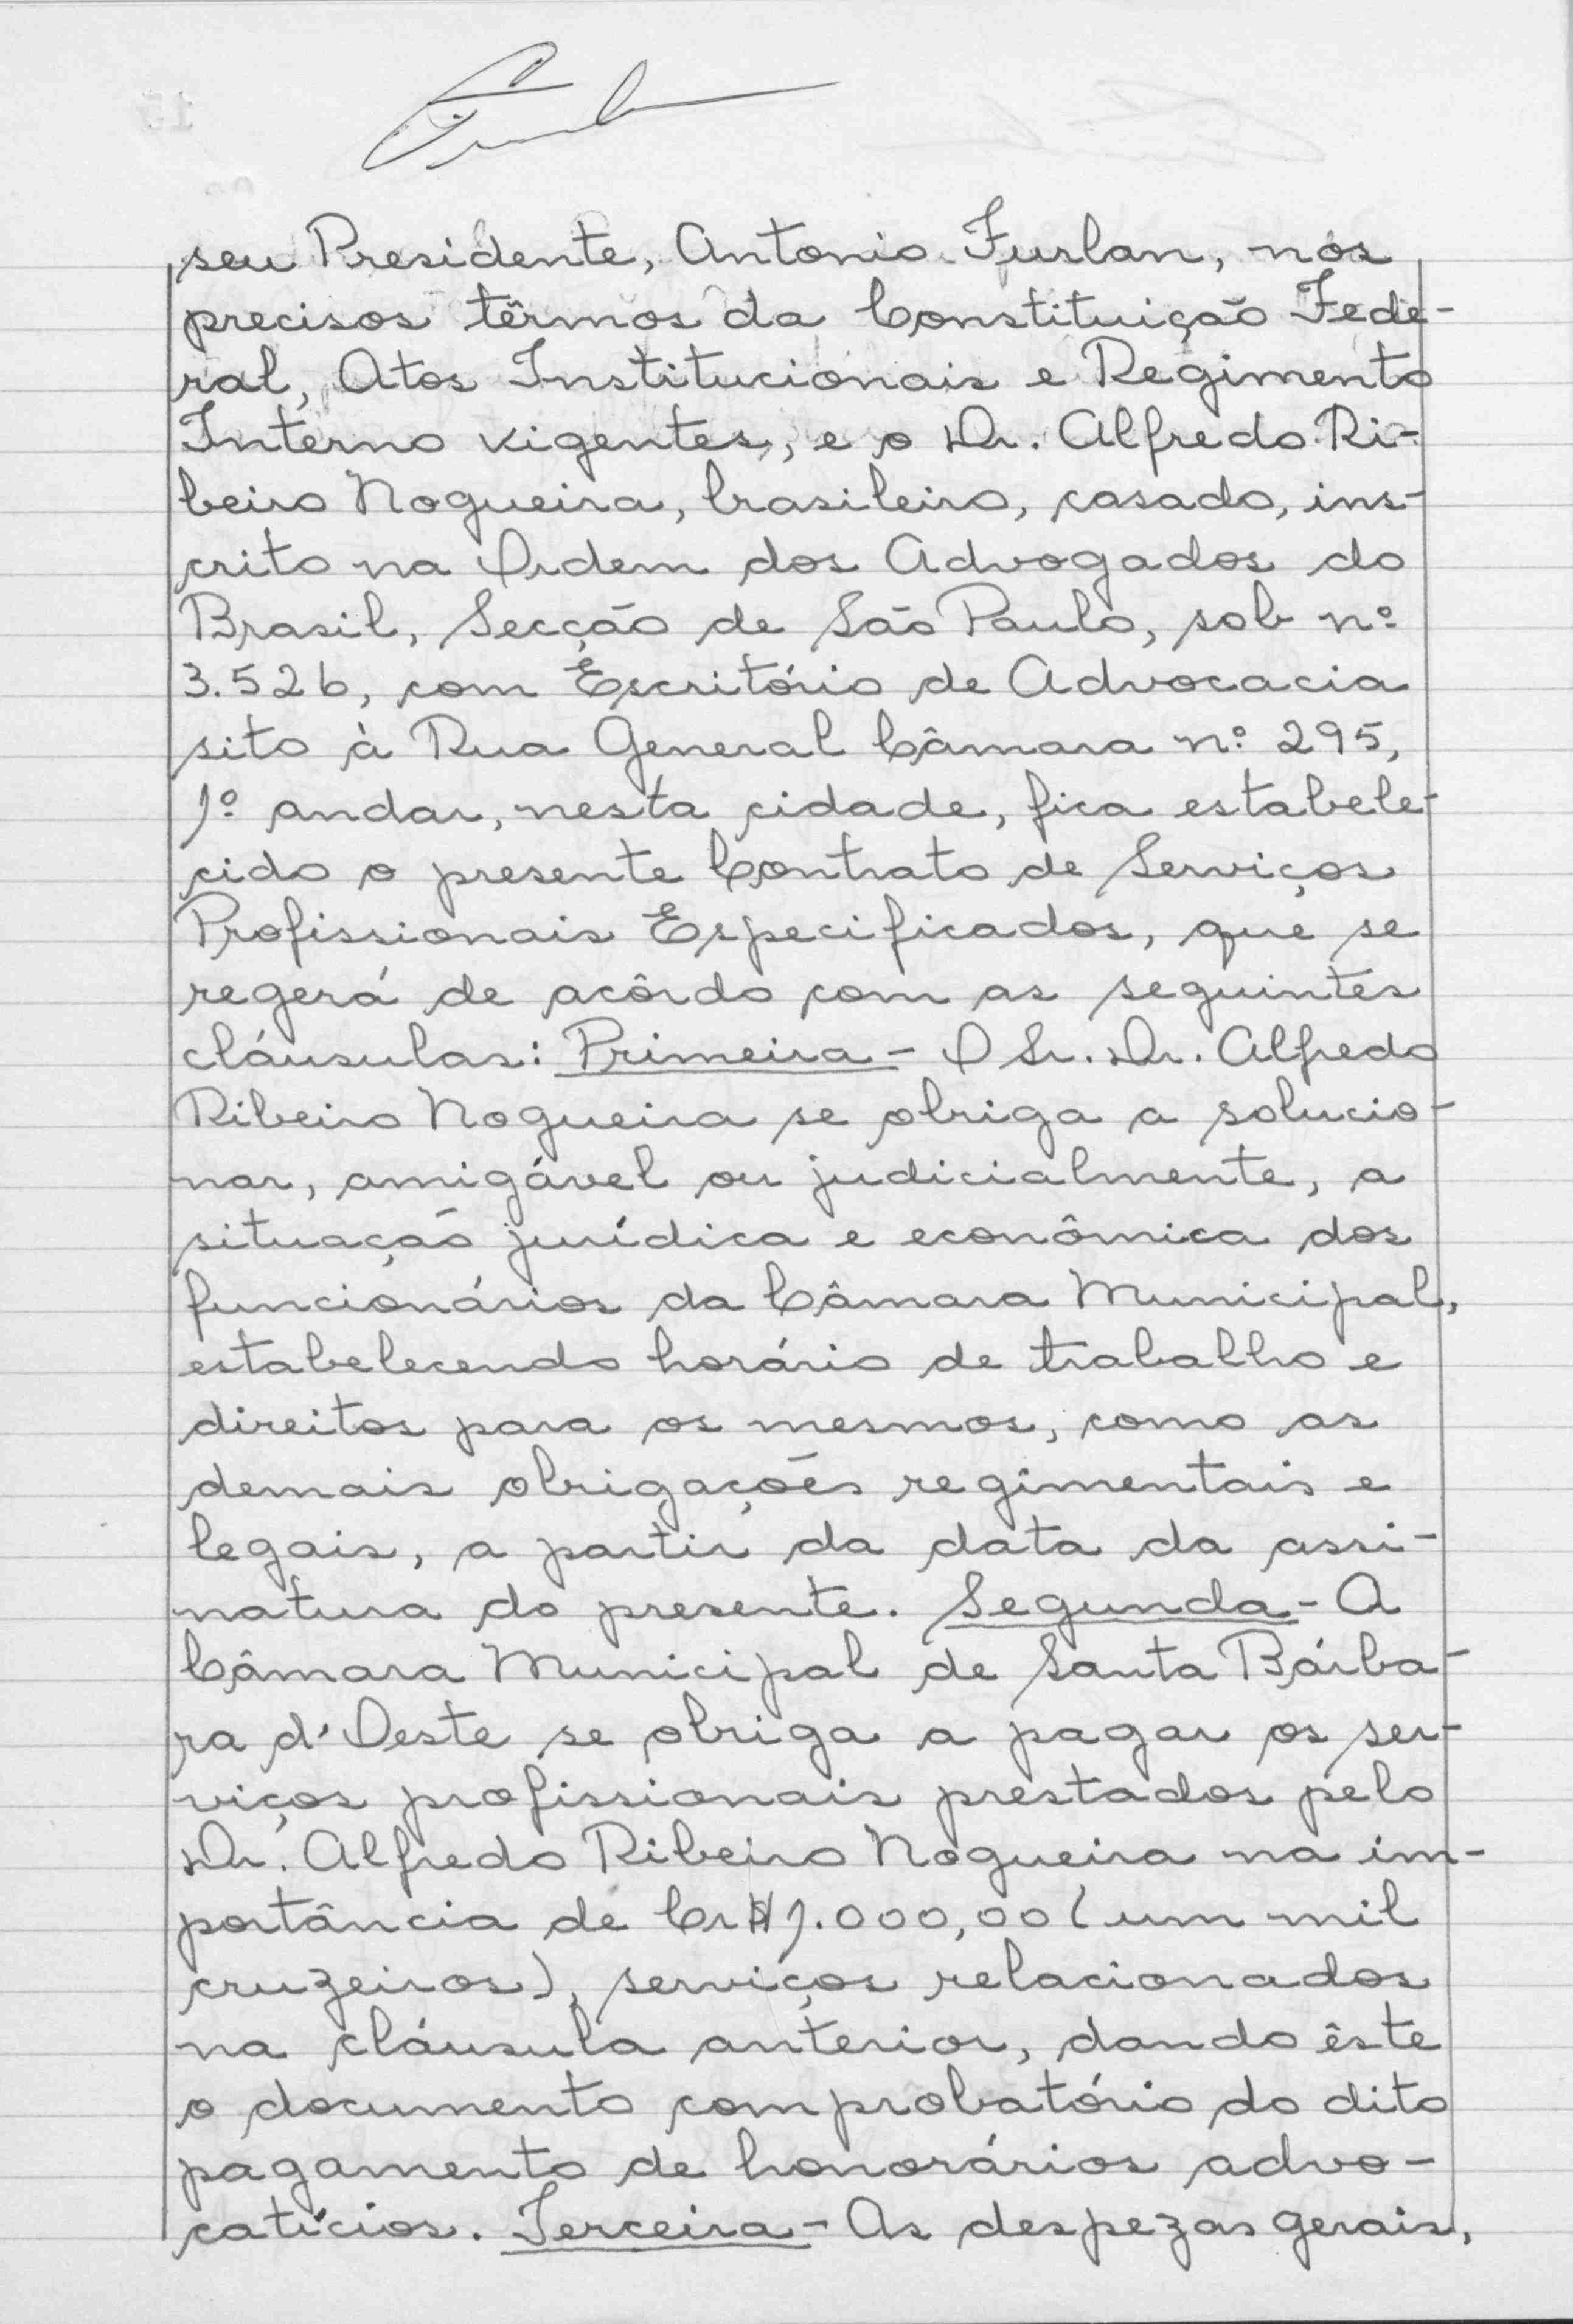 seu Presidente, Antonio Furlan, nos
precisos têrmos da Constituição Fede-
ral, Atos Institucionais e Regimento
Interno vigentes, e o Dr. Alfredo Ri-
beiro Nogueira, brasileiro, casado, ins-
crito na Ordem dos Advogados do
Brasil, Secção de São Paulo, sob nº
3.526, com Escritório de Advocacia
sito à Rua General Câmara nº 295,
1º andar, nesta cidade, fica estabele-
cido o presente Contrato de Serviços
Profissionais Especificados, que se
regerá de acôrdo com as seguintes
cláusulas: Primeira - O Sr. Dr. Alfredo
Ribeiro Nogueira se obriga a solucio-
nar, amigável ou judicialmente, a
situação jurídica e econômica dos
funcionários da Câmara Municipal,
estabelecendo horário de trabalho e
direitos para os mesmos, como as
demais obrigações regimentais e
legais, a partir da data da assi-
natura do presente. Segunda - A
Câmara Municipal de Santa Bárba-
ra d'Oeste se obriga a pagar os ser-
viços profissionais prestados pelo
Dr. Alfredo Ribeiro Nogueira na im-
portância de Cr$ 1.000,00 (um mil
cruzeiros), serviços relacionados
na cláusula anterior, dando êste
o documento comprobatório do dito
pagamento de honorários advo-
catícios. Terceira - As despezas gerais,